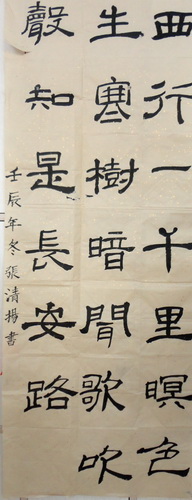 西行一千里暝色
生寒樹暗聞歌吹
聲知是長安路
壬辰年冬張清揚書